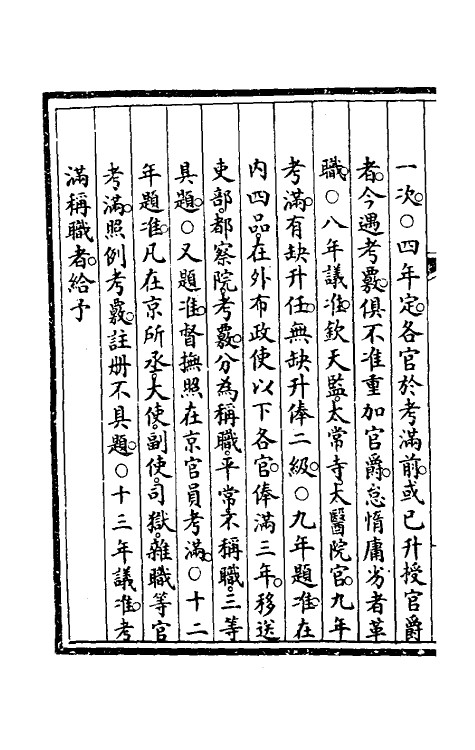 一次○四年定各官於考滿前或已升授官爵
者今遇考覈俱不准重加官爵怠惰庸劣者革
職○八年議准欽天監太常寺太醫院官九年
考滿有缺升任無缺升俸二級○九年題准在
内四品在外布政使以下各官俸滿三年移送
吏部都察院考覈分為稱職平常不稱職三等
具題○又題准督撫照在京官員考滿○十二
年題准凡在京所丞大使副使司獄雜職等官
考滿照例考覈註册不具題○十三年議准考
滿稱職者給予